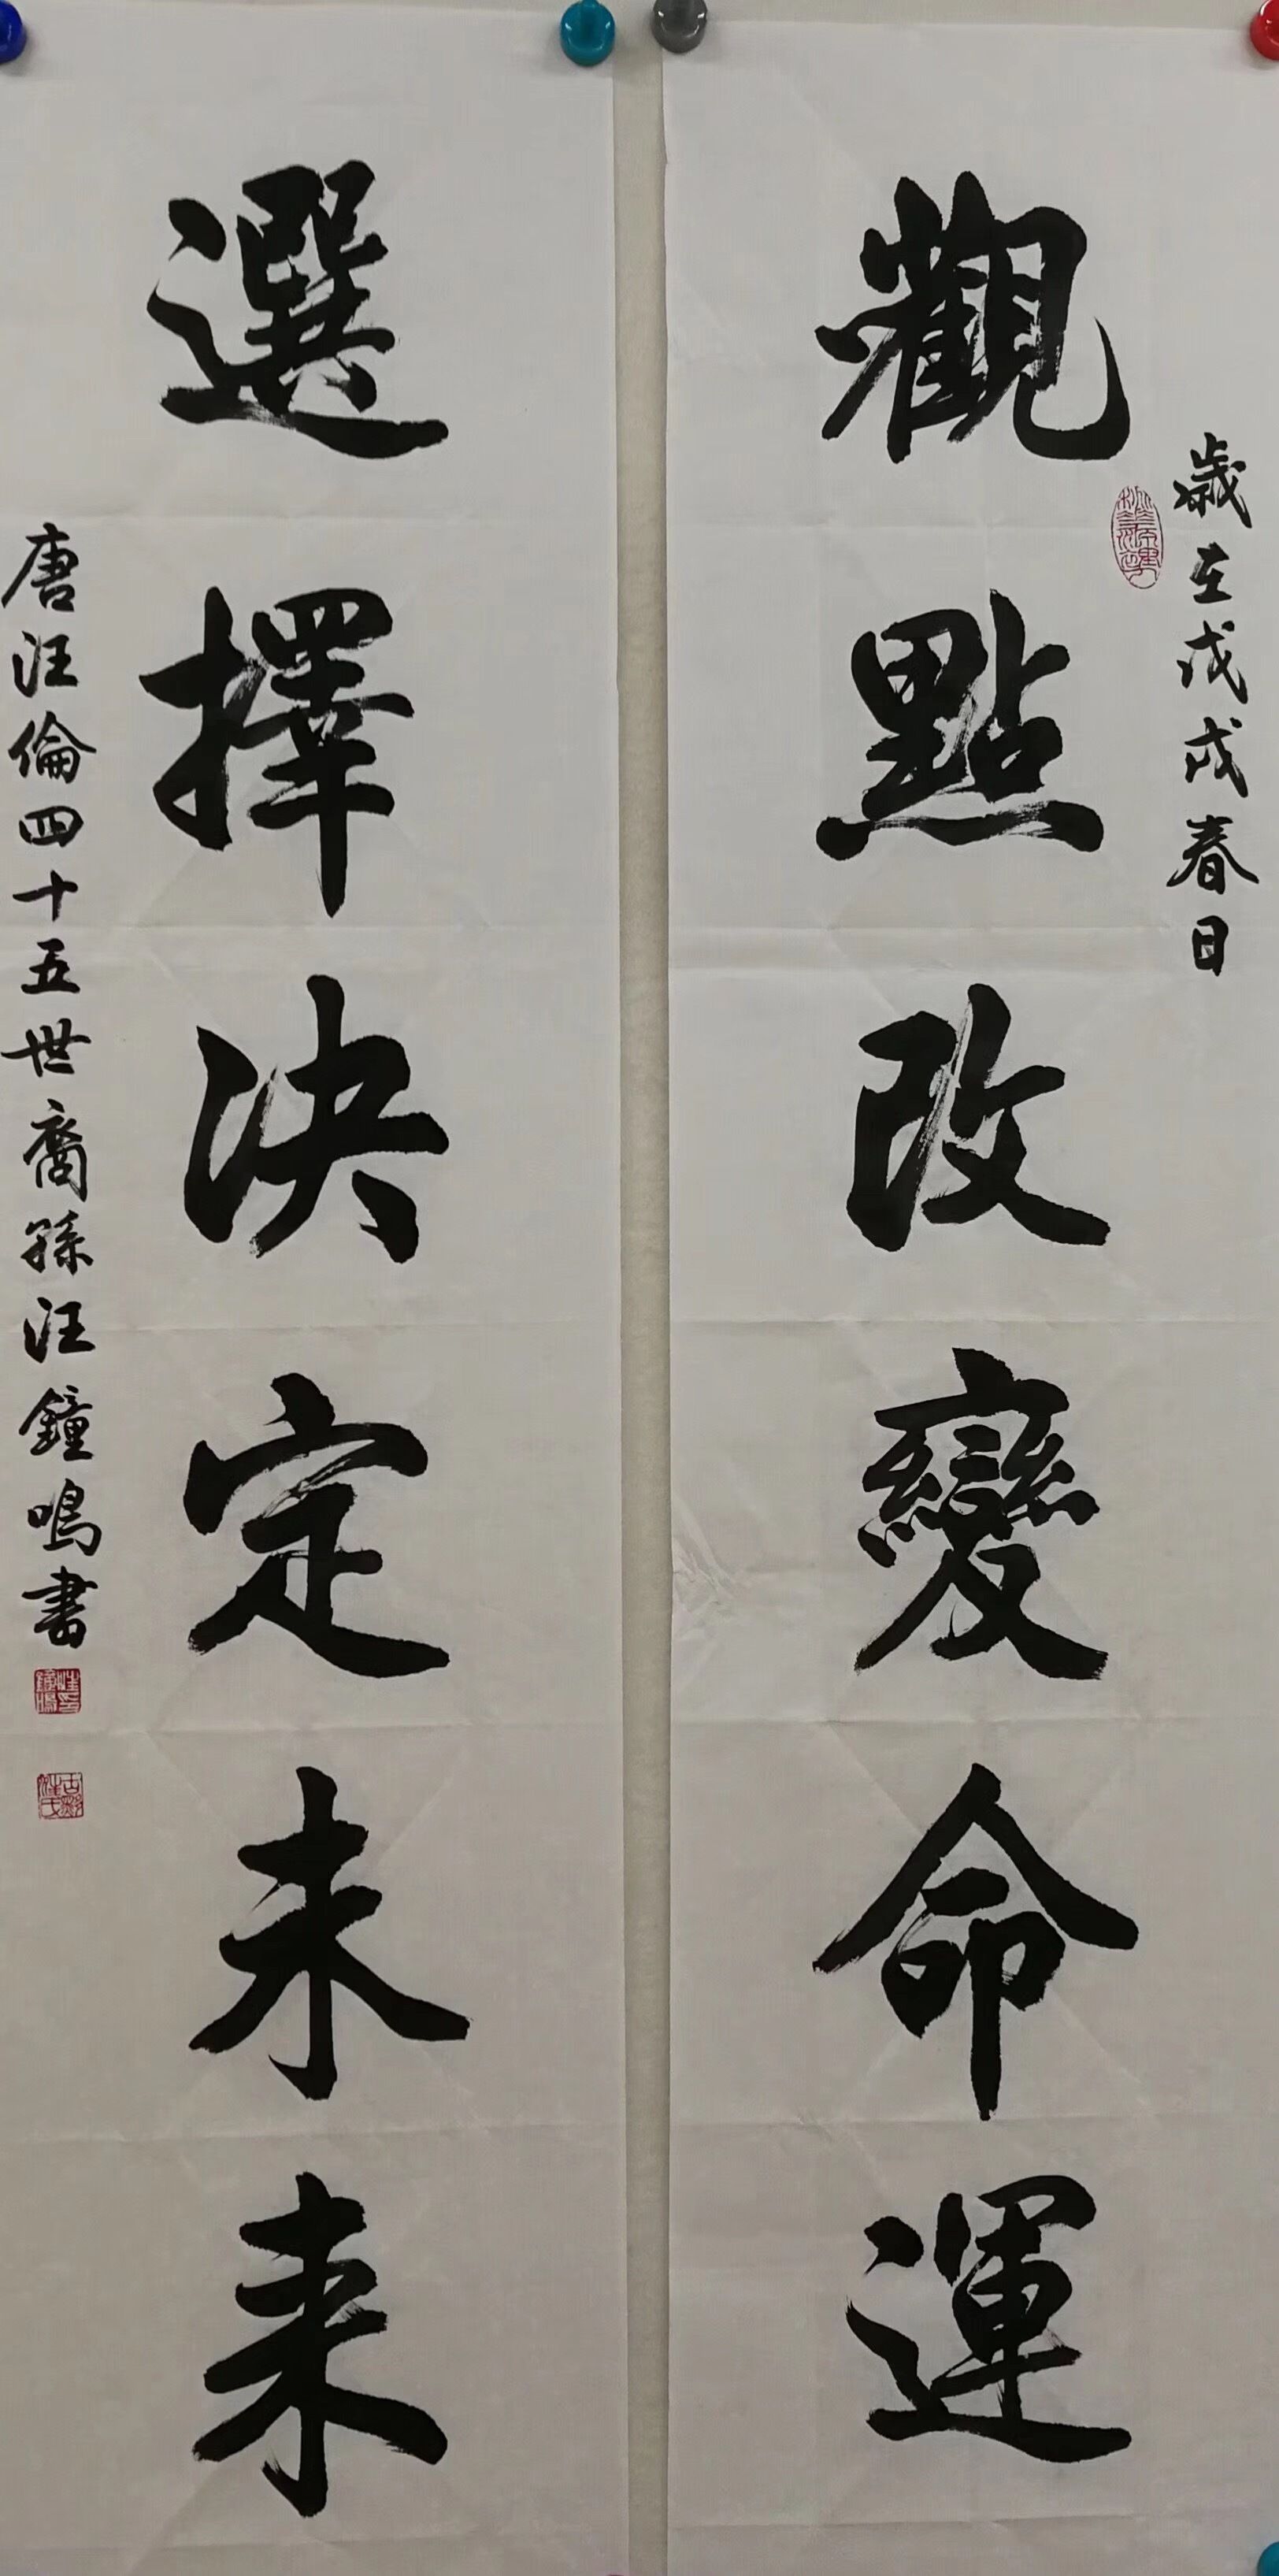 歲在戊戌春日
觀點改變命運
選擇決定未来
唐汪倫四十五世裔孫汪鐘鳴書